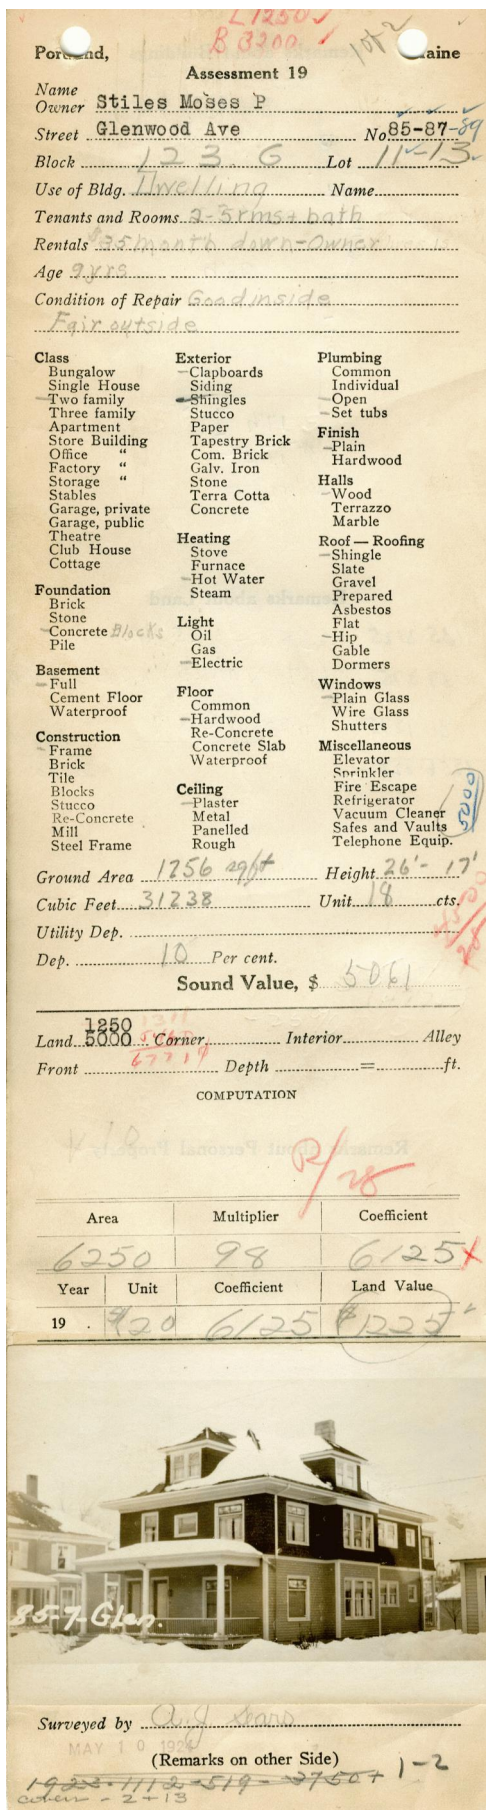 L 1250 ✓
B 3200 ✓
1 of 2
Portland, Maine
Assessment 19
Name
Owner Stiles Moses P
Street Glenwood Ave No 85-87-89
Block 123 G Lot 11-13
Use of Bldg. Dwelling Name
Tenants and Rooms 2-5rms+bath
Rentals $35 month down-Owner
Age 9yrs
Condition of Repair Good inside
Fair outside
Class
Bungalow
Single House
-Two family
Three family
Apartment
Store Building
Office "
Factory "
Storage "
Stables
Garage, private
Garage, public
Theatre
Club House
Cottage
Foundation
Brick
Stone
-Concrete Blocks
Pile
Basement
-Full
Cement Floor
Waterproof
Construction
-Frame
Brick
Tile
Blocks
Stucco
Re-Concrete
Mill
Steel Frame
Exterior
-Clapboards
Siding
-Shingles
Stucco
Paper
Tapestry Brick
Com. Brick
Galv. Iron
Stone
Terra Cotta
Concrete
Heating
Stove
Furnace
-Hot Water
Steam
Light
Oil
Gas
-Electric
Floor
Common
-Hardwood
Re-Concrete
Concrete Slab
Waterproof
Ceiling
-Plaster
Metal
Panelled
Rough
Plumbing
Common
Individual
-Open
-Set tubs
Finish
-Plain
Hardwood
Halls
-Wood
Terrazzo
Marble
Roof — Roofing
-Shingle
Slate
Gravel
Prepared
Asbestos
Flat
-Hip
Gable
Dormers
Windows
-Plain Glass
Wire Glass
Shutters
Miscellaneous
Elevator
Sprinkler
Fire Escape
Refrigerator
Vacuum Cleaner
Safes and Vaults
Telephone Equip.
Ground Area 1256 sq ft Height 26'- 17'
Cubic Feet 31238 Unit 18 cts.
Utility Dep.
Dep. 10 Per cent.
Sound Value, $ 5061
1250
Land 5000 Corner Interior Alley
Front Depth = ft.
COMPUTATION
R/28
Area Multiplier Coefficient
6250 98 6125
Year Unit Coefficient Land Value
19 . $20 6125 $1225
85-7-Glen.
Surveyed by A.J. Sears
MAY 10 192
(Remarks on other Side)
1-2